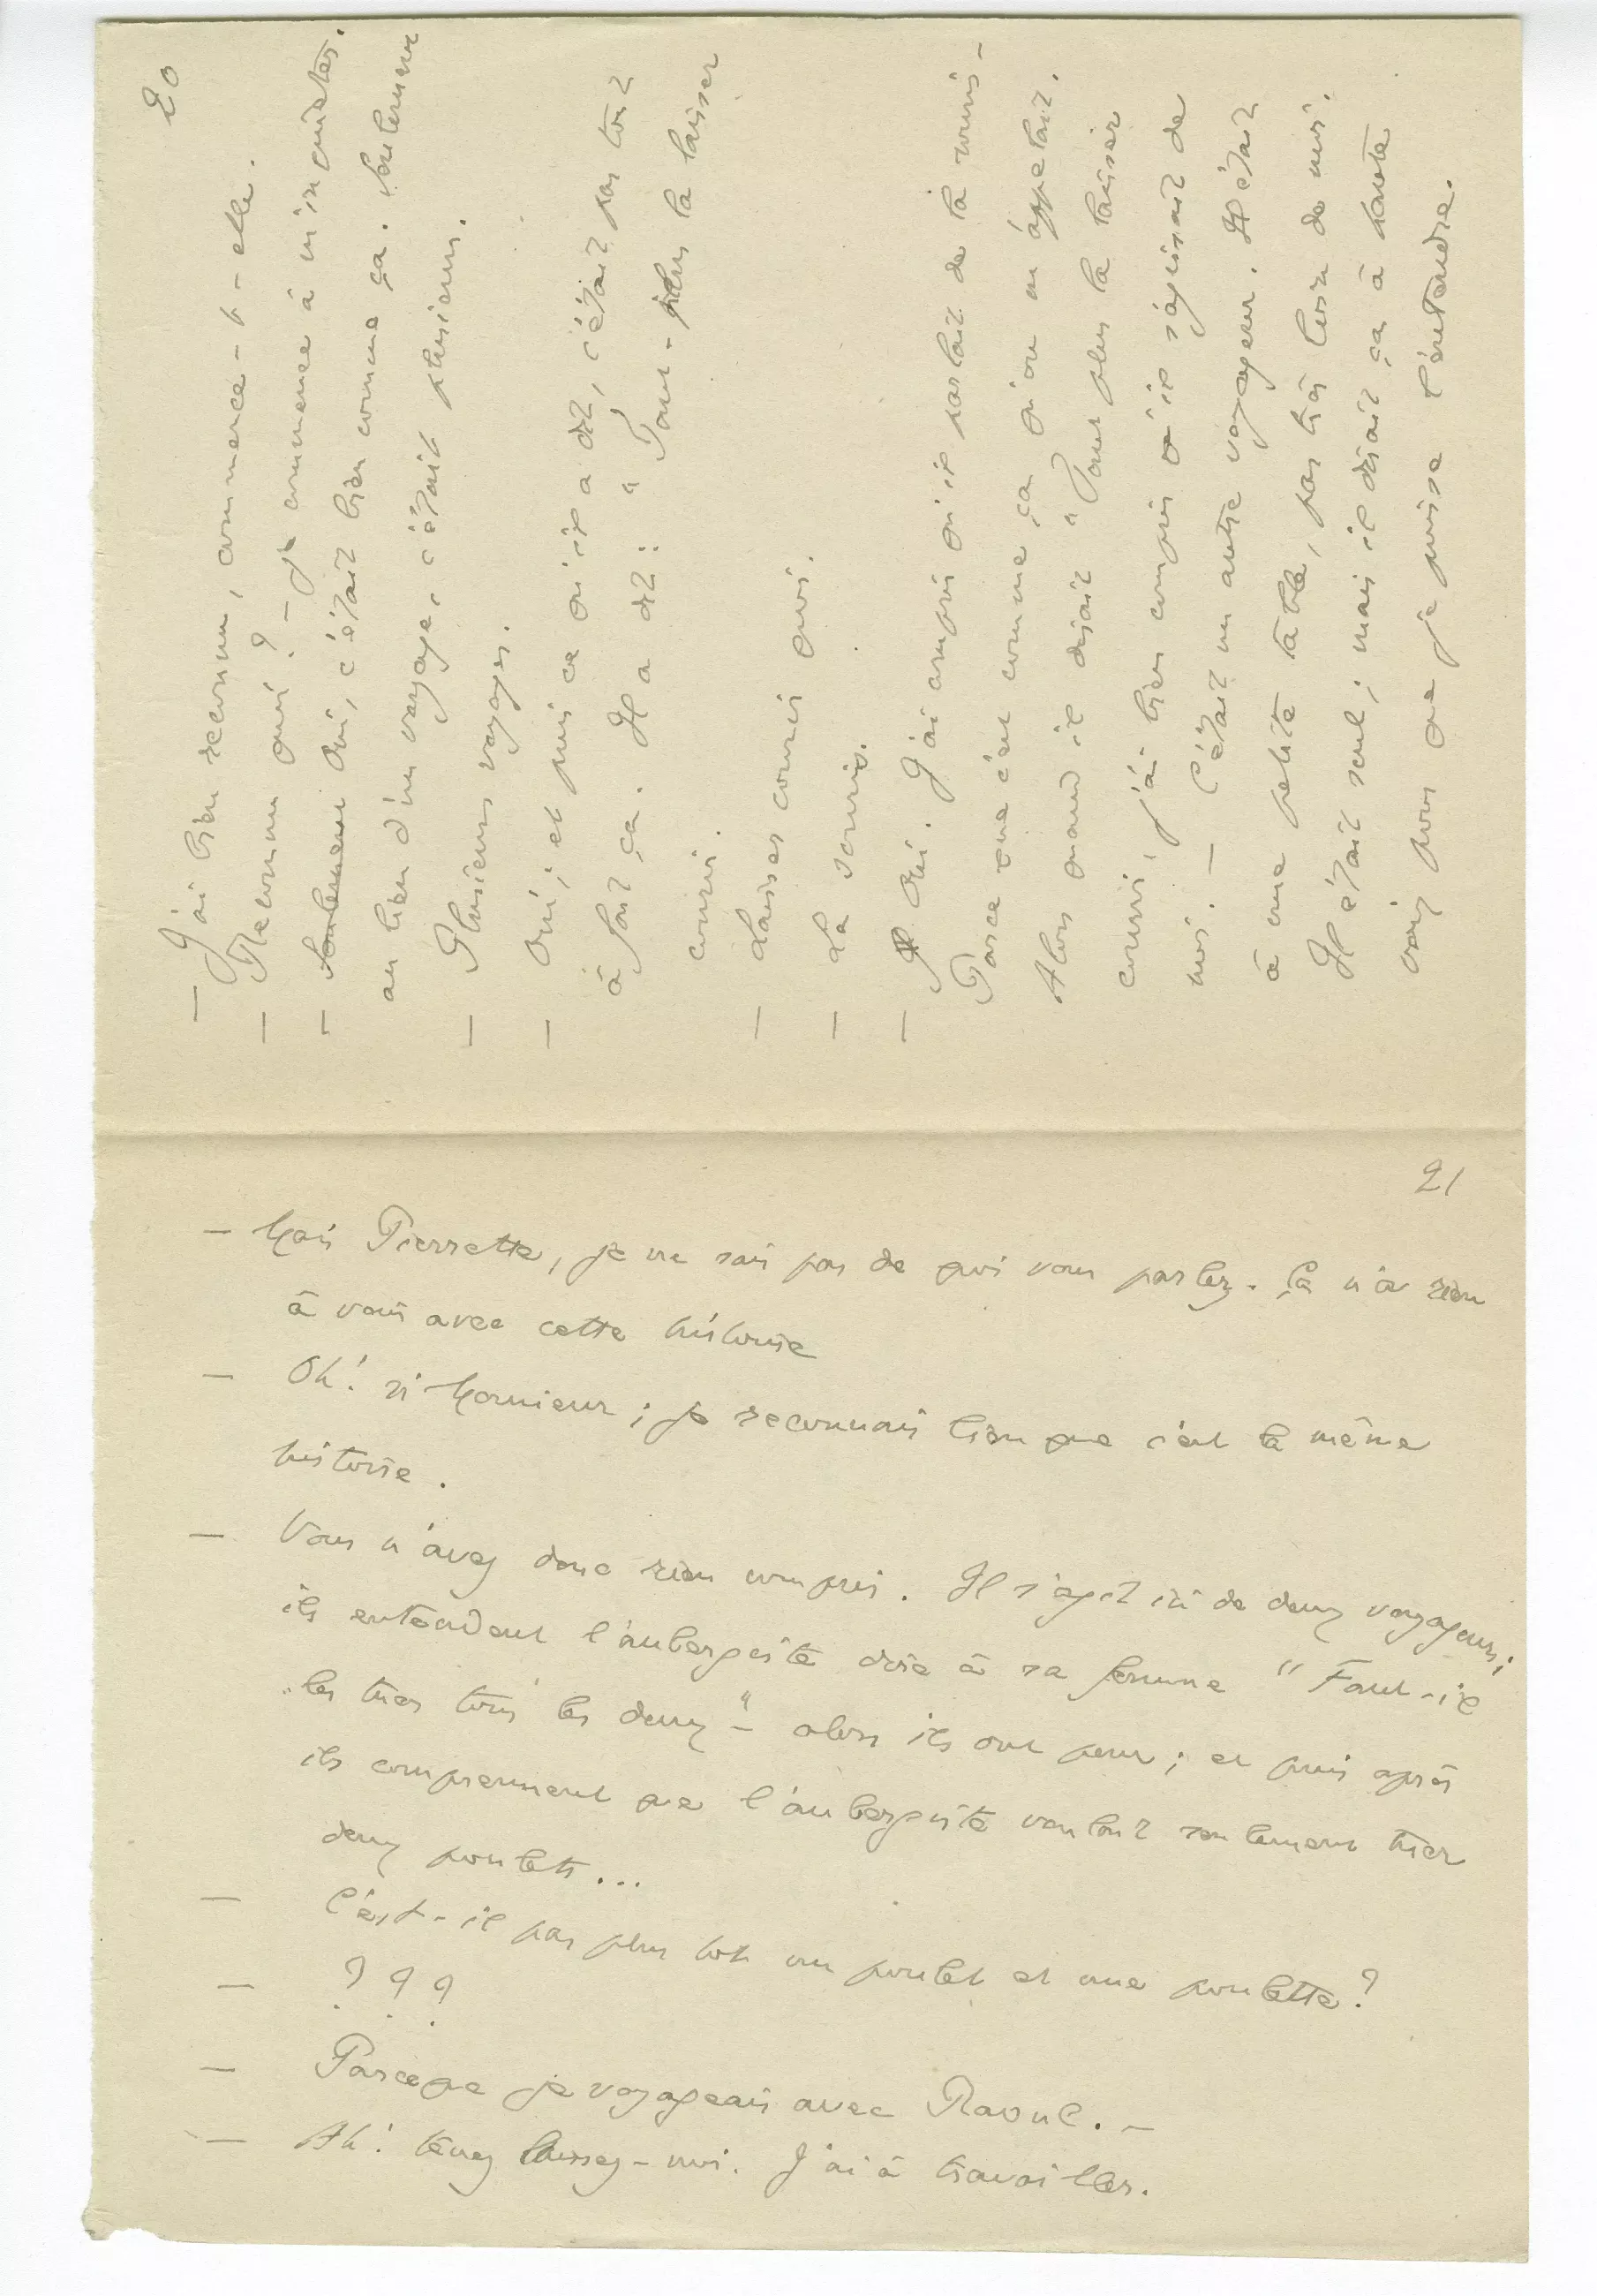 20
— J'ai bien reconnu, commence-t-elle.
— Reconnu quoi ? — je commence à m'inquiéter.
— Seulement Oui, c'était bien comme ça. Seulement
au lieu d'un voyage, c'était plusieurs.
— Plusieurs voyages.
— Oui ; et puis ce qu'il a dit, c'était pas tout
à fait ça. Il a dit : " Faut-plus la laisser
courir.
— Laisser courir quoi.
— La souris.
— Oui. J'ai compris qu'il parlait de la souris -
Parce que c'est comme ça qu'on m'appelait.
Alors quand il disait " Faut plus la laisser
courir, j'ai bien compris qu'il s'agissait de
moi. — C'était un autre voyageur. Il était
à une petite table, pas très loin de moi.
Il était seul ; mais il disait ça à haute
voix pour que je puisse l'entendre.
21
— Mais Pierrette, je ne sais pas de quoi vous parlez. Ça n'a rien
à voir avec cette histoire
— Oh ! si Monsieur ; je reconnais bien que c'est la même
histoire.
— Vous n'avez donc rien compris. Il s'agit ici de deux voyageurs ;
ils entendent l'aubergiste dire à sa femme " Faut-il
"les tuer tous les deux" — alors ils ont peur ; et puis après
ils comprennent que l'aubergiste voulait seulement tuer
deux poulets...
— C'est-il pas plus tôt un poulet et une poulette ?
— ? ? ?
— Parceque je voyageais avec Raoul. —
— Ah ! tenez laissez-moi. J'ai à travailler.